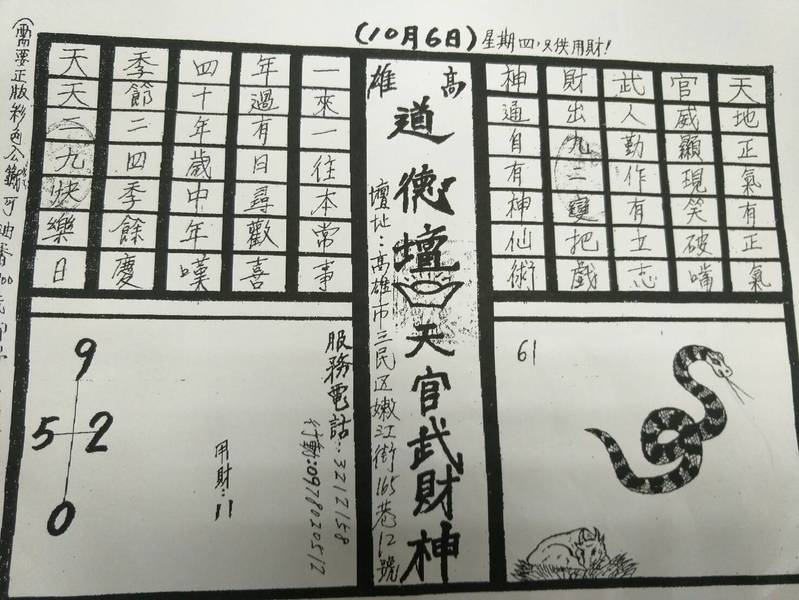 (10月6日) 星期四，只供用財!
天地正氣有正氣
官威顯現笑破嘴
武人勤作有立志
財出九二變把戲
神通自有神仙術
高雄
道德壇 天官武財神
壇址：高雄市三民区嫩江街165巷12號
一來一往本常事
年過有日尋歡喜
四十年歲中年嘆
季節二四季餘慶
天天二九快樂日
61
服務電話：3212158
行動：0978020512
用財：11
9
5 2
0
(需要正版彩